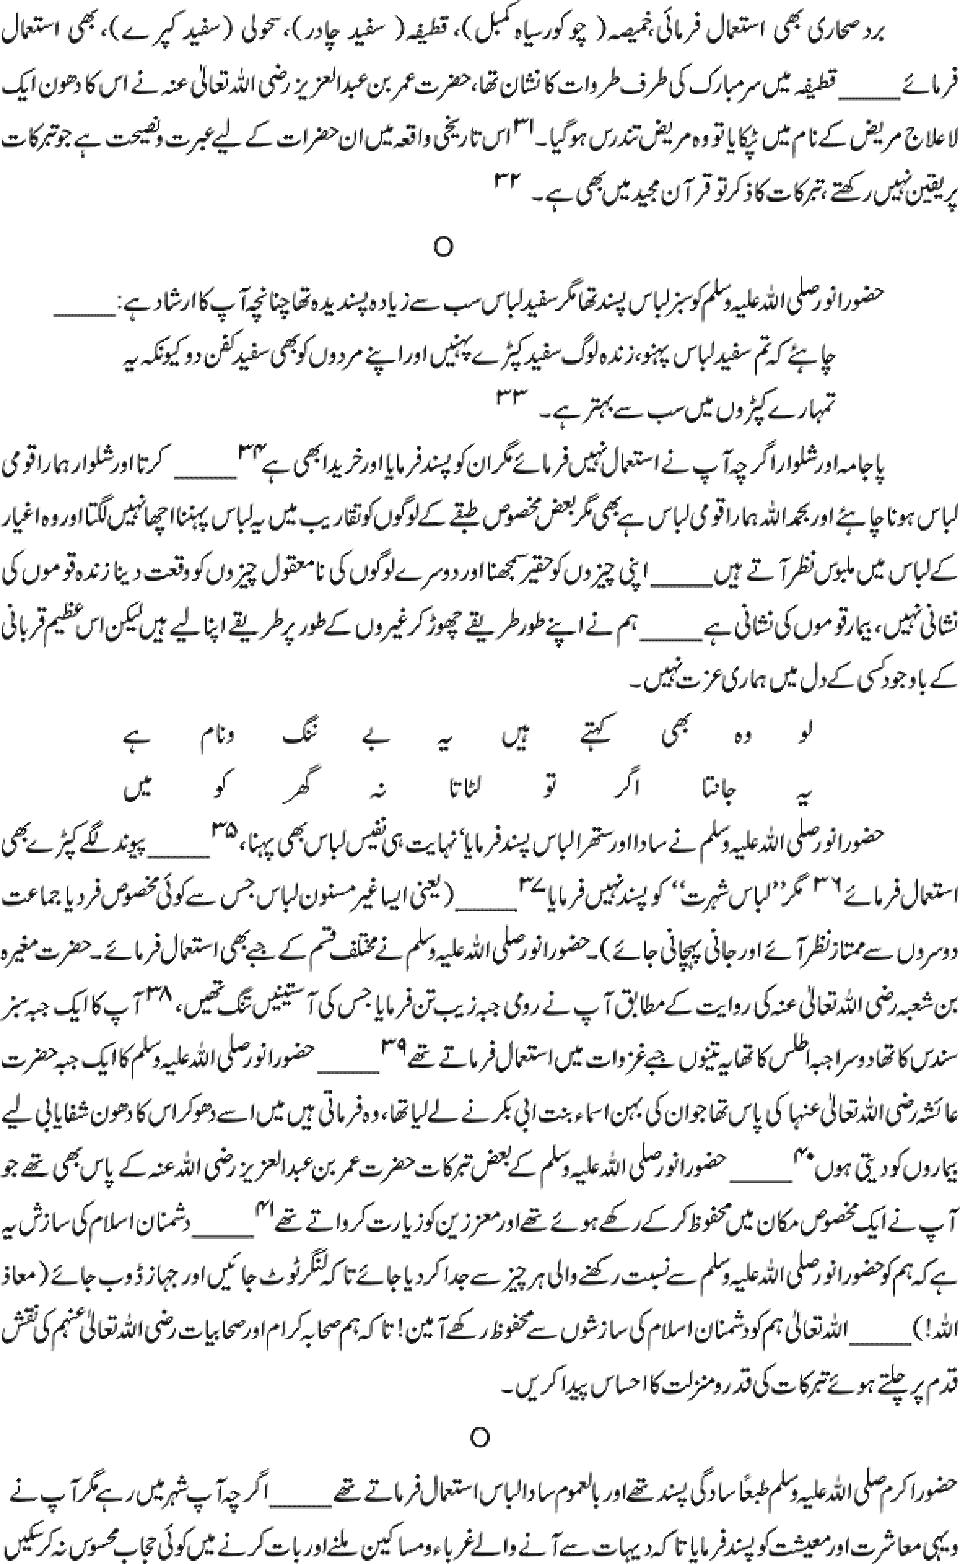 برد صحاری بھی استعمال فرمائی، خمیصہ ( چوکور سیاہ کمبل)، قطیفہ ( سفید چادر)، سحولی (سفید کپرے)، بھی استعمال
فرمائے _____ قطیفہ میں سرمبارک کی طرف طروات کا نشان تھا، حضرت عمر بن عبدالعزیز رضی اللہ تعالیٰ عنہ نے اس کا دھون ایک
لا علاج مریض کے نام میں ٹپکایا تو وہ مریض تندرس ہوگیا۔ ۳۱ اس تاریخی واقعہ میں ان حضرات کے لیے عبرت ونصیحت ہے جو تبرکات
پر یقین نہیں رکھتے، تبرکات کا ذکر تو قر آن مجید میں بھی ہے۔ ۳۲
O
حضور انور صلی اللہ علیہ وسلم کو سبز لباس پسند تھا مگر سفید لباس سب سے زیادہ پسندیدہ تھا چنانچہ آپ کا ارشاد ہے: _____
چاہئے کہ تم سفید لباس پہنو، زندہ لوگ سفید کپڑے پہنیں اور اپنے مردوں کو بھی سفید کفن دو کیونکہ یہ
تمہارے کپڑوں میں سب سے بہتر ہے۔ ۳۳
پاجامہ اور شلوار اگر چہ آپ نے استعمال نہیں فرمائے مگر ان کو پسند فرمایا اور خریدا بھی ہے ۳۴ _____ کرتا اور شلوار ہمارا قومی
لباس ہونا چاہئے اور بحمد اللہ ہمارا قومی لباس ہے بھی مگر بعض مخصوص طبقے کے لوگوں کو تقاریب میں یہ لباس پہننا اچھا نہیں لگتا اور وہ اغیار
کے لباس میں ملبوس نظر آتے ہیں _____ اپنی چیزوں کو حقیر سمجھنا اور دوسرے لوگوں کی نامعقول چیزوں کو وقعت دینا زندہ قوموں کی
نشانی نہیں، بیمار قوموں کی نشانی ہے _____ ہم نے اپنے طور طریقے چھوڑ کر غیروں کے طور پر طریقے اپنا لیے ہیں لیکن اس عظیم قربانی
کے باوجود کسی کے دل میں ہماری عزت نہیں۔
لو وہ بھی کہتے ہیں یہ بے ننگ ونام ہے
یہ جانتا اگر تو لٹاتا نہ گھر کو میں
حضور انور صلی اللہ علیہ وسلم نے سادا اور ستھرا لباس پسند فرمایا‘ نہایت ہی نفیس لباس بھی پہنا، ۳۵ _____ پیوند لگے کپڑے بھی
استعمال فرمائے ۳۶ مگر ’’لباس شہرت‘‘ کو پسند نہیں فرمایا ۳۷ _____ (یعنی ایسا غیر مسنون لباس جس سے کوئی مخصوص فرد یا جماعت
دوسروں سے ممتاز نظر آئے اور جانی پہچانی جائے)۔ حضور انور صلی اللہ علیہ وسلم نے مختلف قسم کے جبے بھی استعمال فرمائے۔ حضرت مغیرہ
بن شعبہ رضی اللہ تعالیٰ عنہ کی روایت کے مطابق آپ نے رومی جبہ زیب تن فرمایا جس کی آستینیں تنگ تھیں، ۳۸ آپ کا ایک جبہ سبز
سندس کا تھا دوسرا جبہ اطلس کا تھا یہ تینوں جبے غزوات میں استعمال فرماتے تھے ۳۹ _____ حضور انور صلی اللہ علیہ وسلم کا ایک جبہ حضرت
عائشہ رضی اللہ تعالیٰ عنہا کی پاس تھا جو ان کی بہن اسماء بنت ابی بکر نے لے لیا تھا، وہ فرماتی ہیں میں اسے دھوکر اس کا دھون شفایابی لیے
بیماروں کو دیتی ہوں ۴۰ _____ حضور انور صلی اللہ علیہ وسلم کے بعض تبرکات حضرت عمر بن عبدالعزیز رضی اللہ عنہ کے پاس بھی تھے جو
آپ نے ایک مخصوص مکان میں محفوظ کر کے رکھے ہوئے تھے اور معززین کو زیارت کرواتے تھے ۴۱ _____ دشمنان اسلام کی سازش یہ
ہے کہ ہم کو حضور انور صلی اللہ علیہ وسلم سے نسبت رکھنے والی ہر چیز سے جدا کر دیا جائے تا کہ لنگر ٹوٹ جائیں اور جہاز ڈوب جائے (معاذ
اللہ!) _____ اللہ تعالیٰ ہم کو دشمنان اسلام کی سازشوں سے محفوظ رکھے آمین! تا کہ ہم صحابہ کرام اور صحابیات رضی اللہ تعالیٰ عنہم کی نقش
قدم پر چلتے ہوئے تبرکات کی قدر و منزلت کا احساس پیدا کریں۔
O
حضور اکرم صلی اللہ علیہ وسلم طبعاً سادگی پسند تھے اور بالعموم سادا لباس استعمال فرماتے تھے _____ اگر چہ آپ شہر میں رہے مگر آپ نے
ویہی معاشرت اور معیشت کو پسند فرمایا تا کہ دیہات سے آنے والے غرباء و مساکین ملنے اور بات کرنے میں کوئی حجاب محسوس نہ کرسکیں